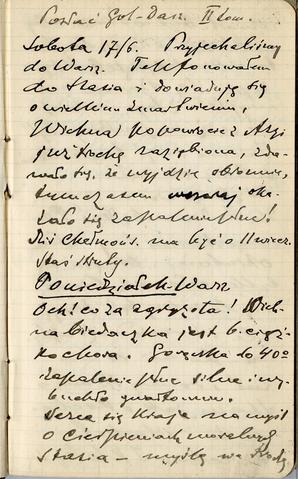 Posłać Gol-Dasz. II tom.
Sobota 17/6. Przyjechaliśmy
do Warsz. Telefonowałem
do Stasia i dowiaduję się
o wielkim zmartwieniu,
Wichna
już trochę zaziębiona, zda-
wało się, że wyjdzie obronnie,
tymczasem wczoraj oka-
zało się zapalenie płuc!
Dziś Chełmoń. ma być o 11 wiecz.
Staś
Poniedziałek Warsz
Och! co za zgryzota! Wich-
na biedaczka jest b. ciężko
chora. Gorączka do 40°
zapalenie płuc silne i wy-
buchło gwałtownie.
Serce się kraje na myśl
o cierpieniach moralnych
Stasia – myślę